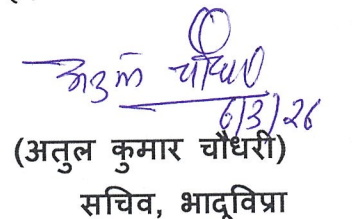 अतुल चौधरी
6/3/26
(अतुल कुमार चौधरी)
सचिव, भादूविप्रा